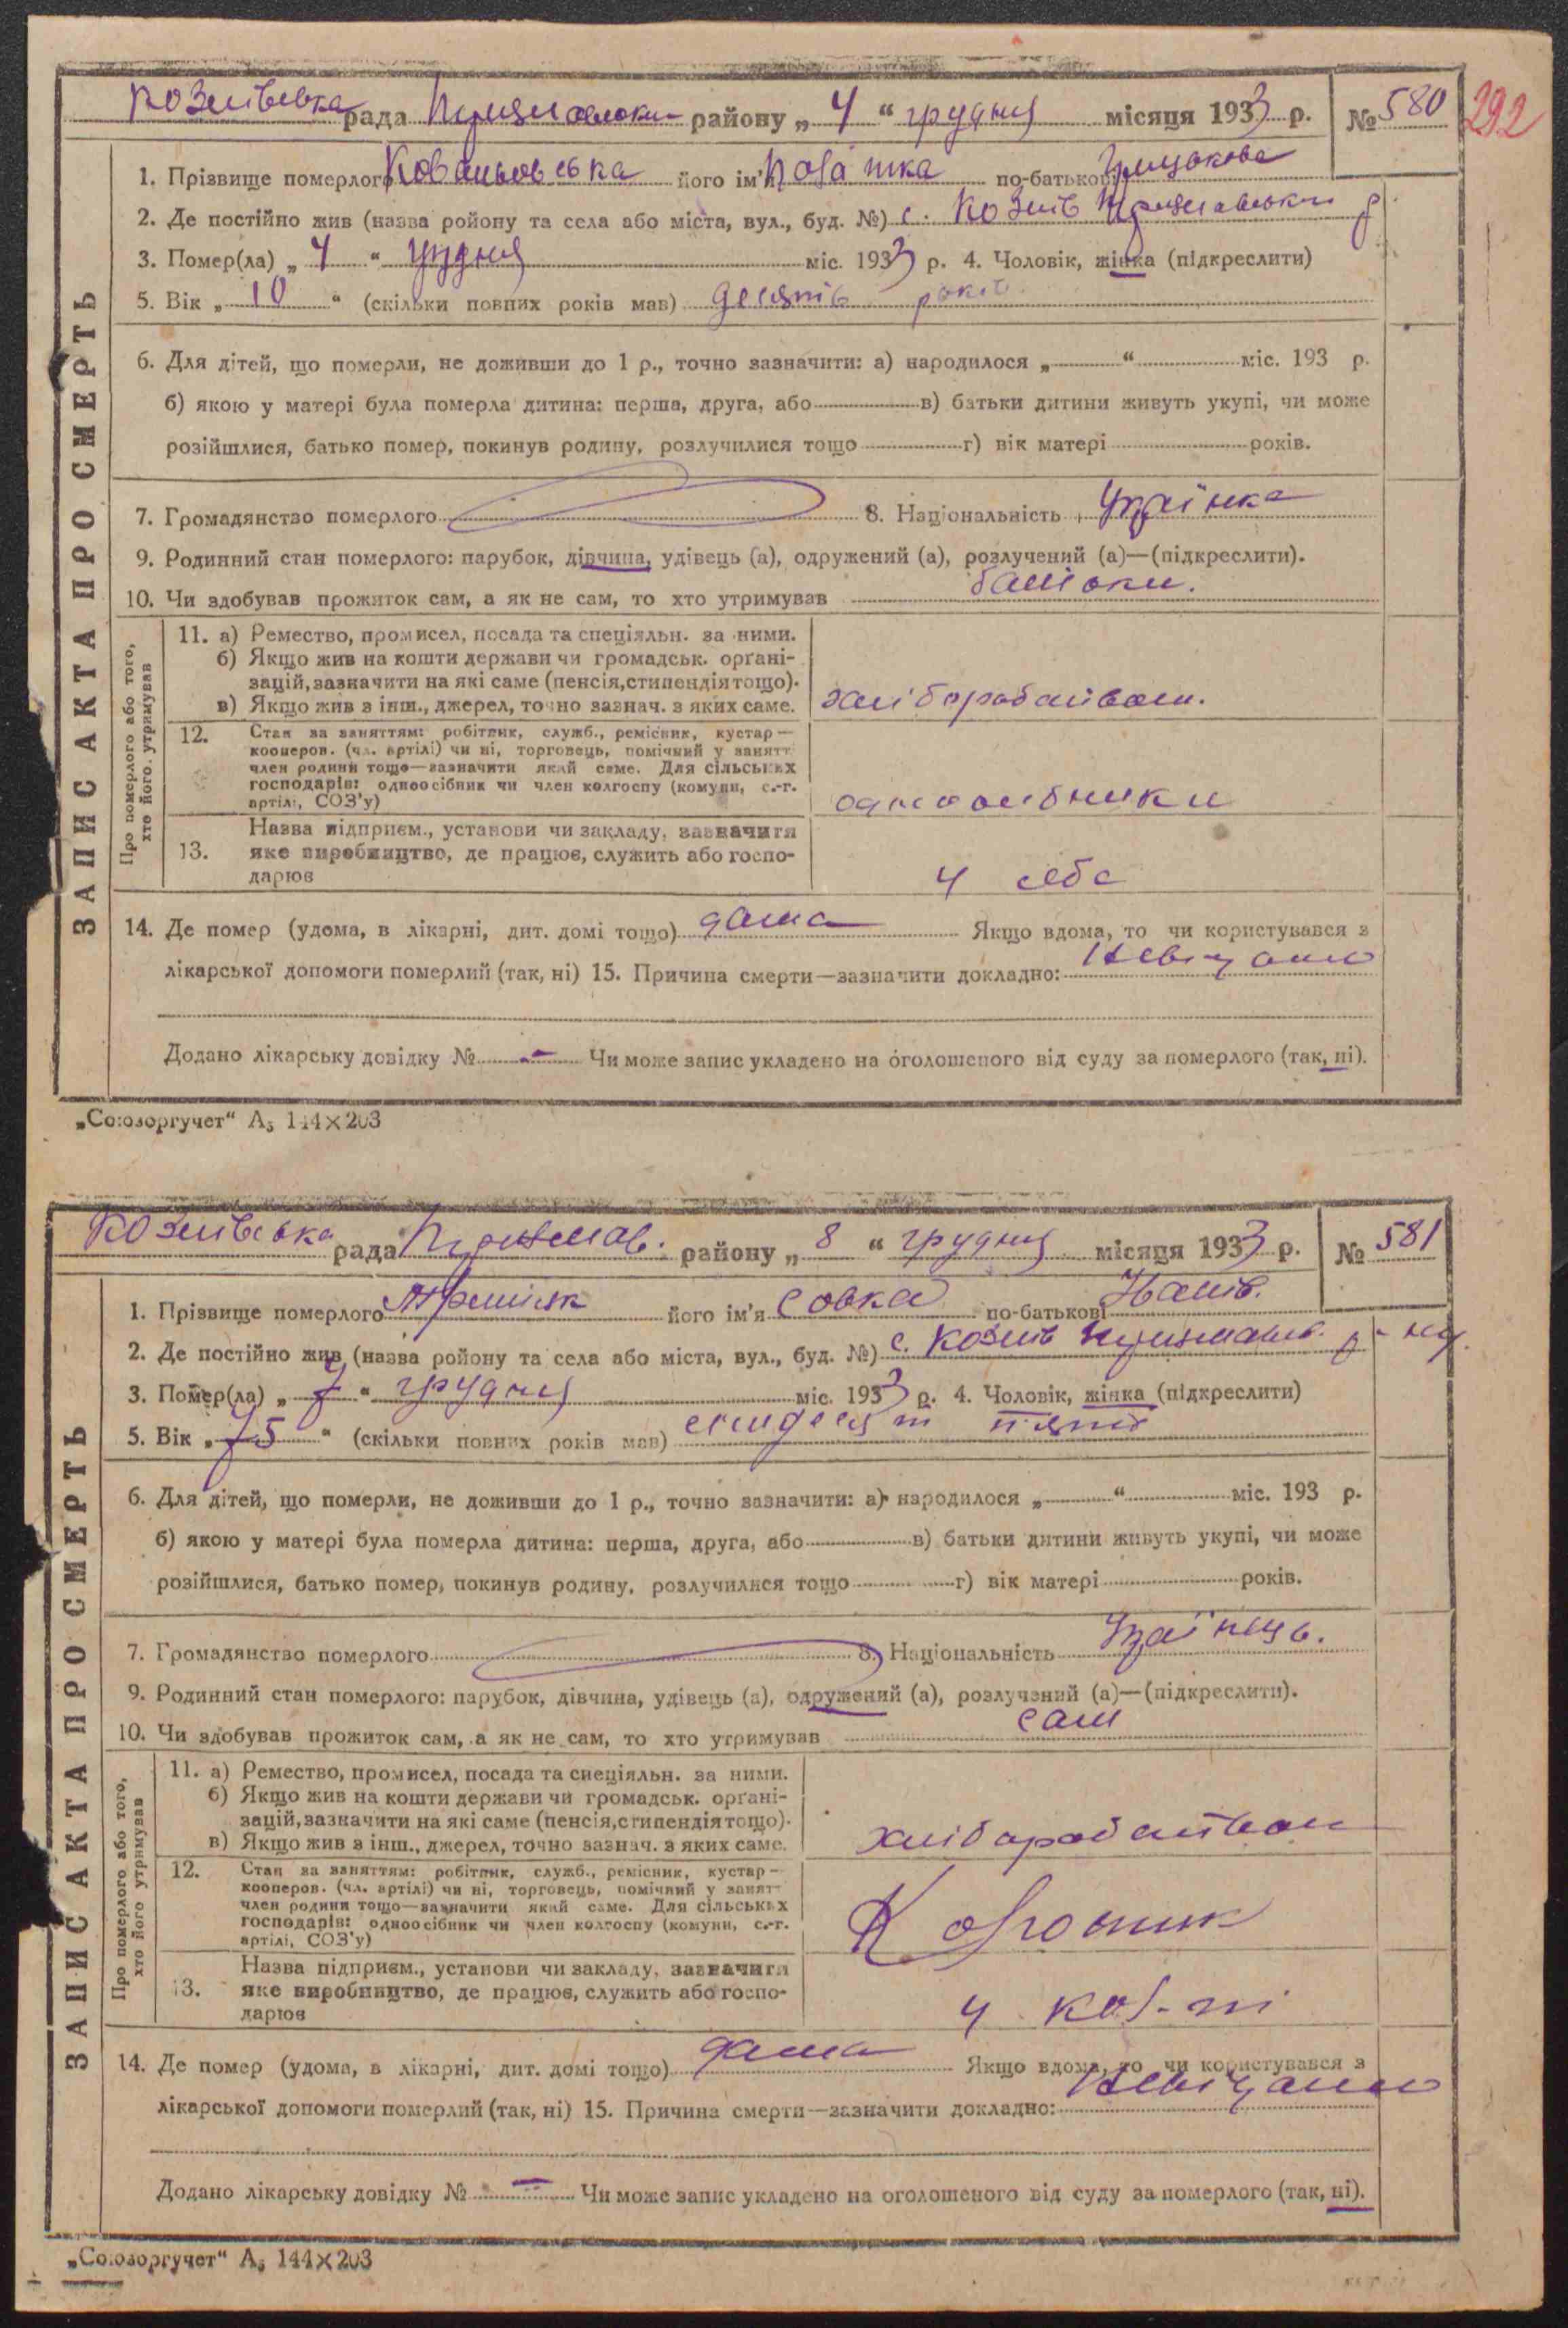 рада району „ 4 “ грудня місяця 1933 р. № 580 292
1. Прізвище померлого Ковальовська його ім'я по-батькові Грицькова
2. Де постійно жив (назва ройону та села або міста, вул., буд. №) с. Козлів р
3. Помер(ла) „ 4 “ грудня міс. 1933 р. 4. Чоловік, жінка (підкреслити)
5. Вік „ 10 “ (скільки повних років мав) десять років
6. Для дітей, що померли, не доживши до 1 р., точно зазначити: а) народилося „ “ міс. 193 р.
б) якою у матері була померла дитина: перша, друга, або в) батьки дитини живуть укупі, чи може
розійшлися, батько помер, покинув родину, розлучилися тощо г) вік матері років.
7. Громадянство померлого 8. Національність Українка
9. Родинний стан померлого: парубок, дівчина, удівець (а), одружений (а), розлучений (а)—(підкреслити).
10. Чи здобував прожиток сам, а як не сам, то хто утримував батьки.
ЗАПИС АКТА ПРО СМЕРТЬ
Про померлого або того,
хто його утримував
11. а) Ремество, промисел, посада та спеціяльн. за ними.
б) Якщо жив на кошти держави чи громадськ. орґані-
зацій, зазначити на які саме (пенсія, стипендія тощо).
в) Якщо жив з інш., джерел, точно зазнач. з яких саме.
12. Стан за заняттям: робітник, служб., ремісник, кустар—
кооперов. (чл. артілі) чи ні, торговець, помічний у занятт
член родини тощо—зазначити який саме. Для сільських
господарів: одноосібник чи член колгоспу (комуни, с.-г.
артілі, СОЗ'у) одноосібники
13. Назва підприєм., установи чи закладу, зазначити
яке виробництво, де працює, служить або госпо-
дарює у себе
14. Де помер (удома, в лікарні, дит. домі тощо) дома Якщо вдома, то чи користувався з
лікарської допомоги померлий (так, ні) 15. Причина смерти—зазначити докладно: Невідомо
Додано лікарську довідку № — Чи може запис укладено на оголошеного від суду за померлого (так, ні).
„Союзоргучет“ А₅ 144×203
Козлівська рада району „ 8 “ грудня місяця 1933 р. № 581
1. Прізвище померлого його ім'я Совка по-батькові Іванів.
2. Де постійно жив (назва ройону та села або міста, вул., буд. №) с. Козлів р-ну.
3. Помер(ла) „ 7 “ грудня міс. 1933 р. 4. Чоловік, жінка (підкреслити)
5. Вік „ 75 “ (скільки повних років мав) сімдесят пять
6. Для дітей, що померли, не доживши до 1 р., точно зазначити: а) народилося „ “ міс. 193 р.
б) якою у матері була померла дитина: перша, друга, або в) батьки дитини живуть укупі, чи може
розійшлися, батько помер, покинув родину, розлучилися тощо г) вік матері років.
7. Громадянство померлого 8. Національність Українець.
9. Родинний стан померлого: парубок, дівчина, удівець (а), одружений (а), розлучений (а)—(підкреслити).
10. Чи здобував прожиток сам, а як не сам, то хто утримував сам
ЗАПИС АКТА ПРО СМЕРТЬ
Про померлого або того,
хто його утримував
11. а) Ремество, промисел, посада та спеціяльн. за ними.
б) Якщо жив на кошти держави чи громадськ. орґані-
зацій, зазначити на які саме (пенсія, стипендія тощо).
в) Якщо жив з інш., джерел, точно зазнач. з яких саме.
12. Стан за заняттям: робітник, служб., ремісник, кустар—
кооперов. (чл. артілі) чи ні, торговець, помічний у занятт
член родини тощо—зазначити який саме. Для сільських
господарів: одноосібник чи член колгоспу (комуни, с.-г.
артілі, СОЗ'у)
13. Назва підприєм., установи чи закладу, зазначити
яке виробництво, де працює, служить або госпо-
дарює у
14. Де помер (удома, в лікарні, дит. домі тощо) дома Якщо вдома, то чи користувався з
лікарської допомоги померлий (так, ні) 15. Причина смерти—зазначити докладно: Невідомо
Додано лікарську довідку № — Чи може запис укладено на оголошеного від суду за померлого (так, ні).
„Союзоргучет“ А₅ 144×203